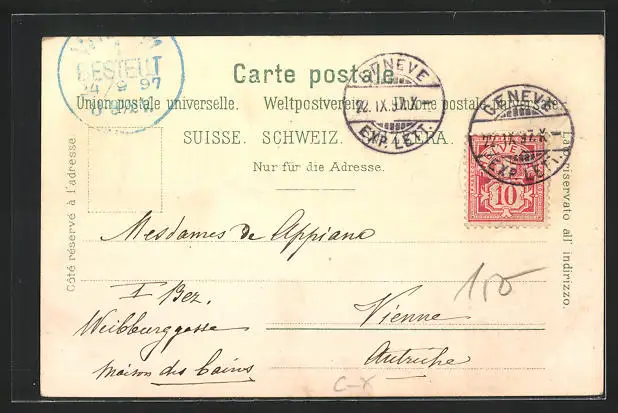 BESTELLT
24/9 97
Carte postale.
GENEVE
22.IX.97.X—
EXP. LETT.
GENEVE
22.IX.97.X—
EXP. LETT.
Union postale universelle. Weltpostverein. Unione postale universale.
SUISSE. SCHWEIZ. SVIZZERA.
Nur für die Adresse.
Côté réservé à l'adresse.
Lato riservato all' indirizzo.
HELVETIA
10
Mesdames de Appiano
I Bez.
Weibburggasse
maison des bains
Vienne
Autriche
C-X